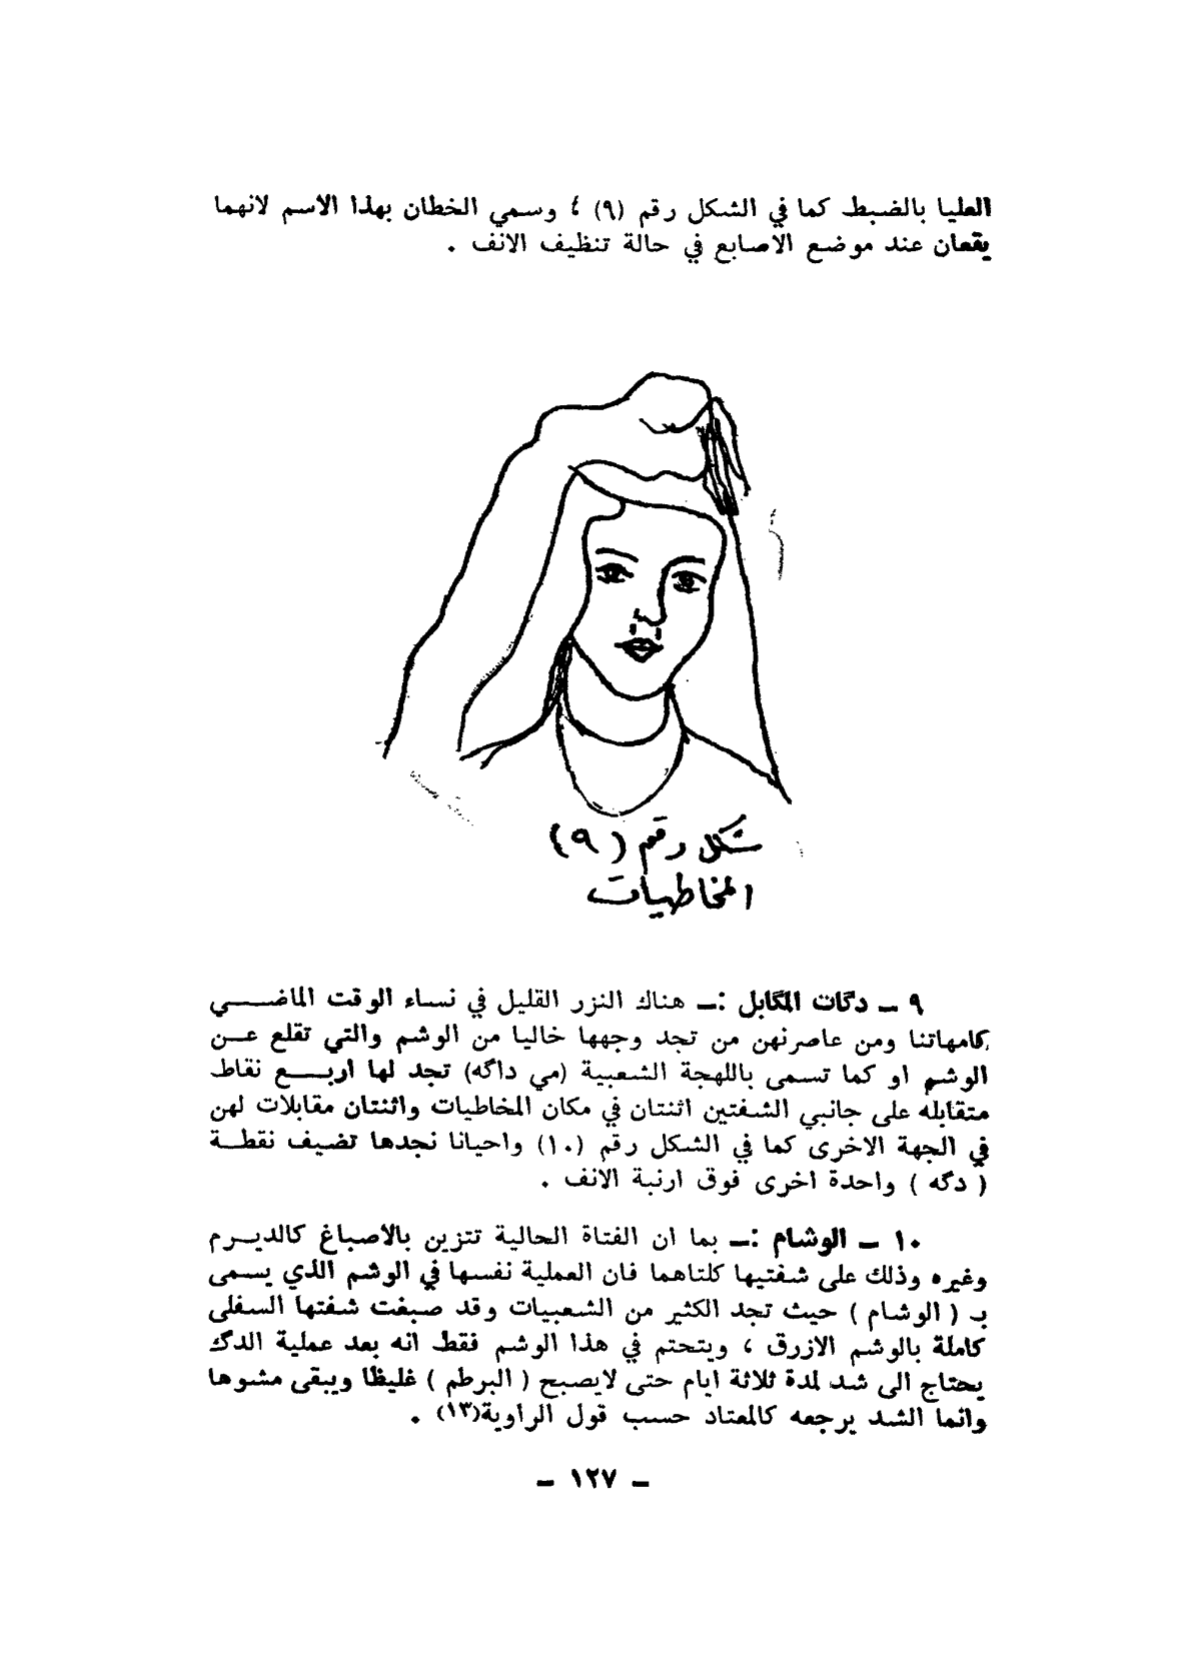 العليا بالضبط كما في الشكل رقم (٩) ، وسمي الخطان بهذا الاسم لانهما
يقعان عند موضع الاصابع في حالة تنظيف الانف .
شكل رقم (٩)
المخاطيات
٩ ــ دگات المگابل :ــ هناك النزر القليل في نساء الوقت الماضــــي
كامهاتنا ومن عاصرنهن من تجد وجهها خاليا من الوشم والتي تقلع عــن
الوشم او كما تسمى باللهجة الشعبية (مي داگه) تجد لها اربــــع نقاط
متقابله على جانبي الشفتين اثنتان في مكان المخاطيات واثنتان مقابلات لهن
في الجهة الاخرى كما في الشكل رقم (١٠) واحيانا نجدها تضيف نقطــة
( دگه ) واحدة اخرى فوق ارنبة الانف .
١٠ ــ الوشام :ــ بما ان الفتاة الحالية تتزين بالاصباغ كالديــرم
وغيره وذلك على شفتيها كلتاهما فان العملية نفسها في الوشم الذي يسمى
بـ ( الوشام ) حيث تجد الكثير من الشعبيات وقد صبغت شفتها السفلى
كاملة بالوشم الازرق ، ويتحتم في هذا الوشم فقط انه بعد عملية الدگ
يحتاج الى شد لمدة ثلاثة ايام حتى لايصبح ( البرطم ) غليظا ويبقى مشوها
وانما الشد يرجعه كالمعتاد حسب قول الراوية(١٣) .
ــ ١٢٧ ــ